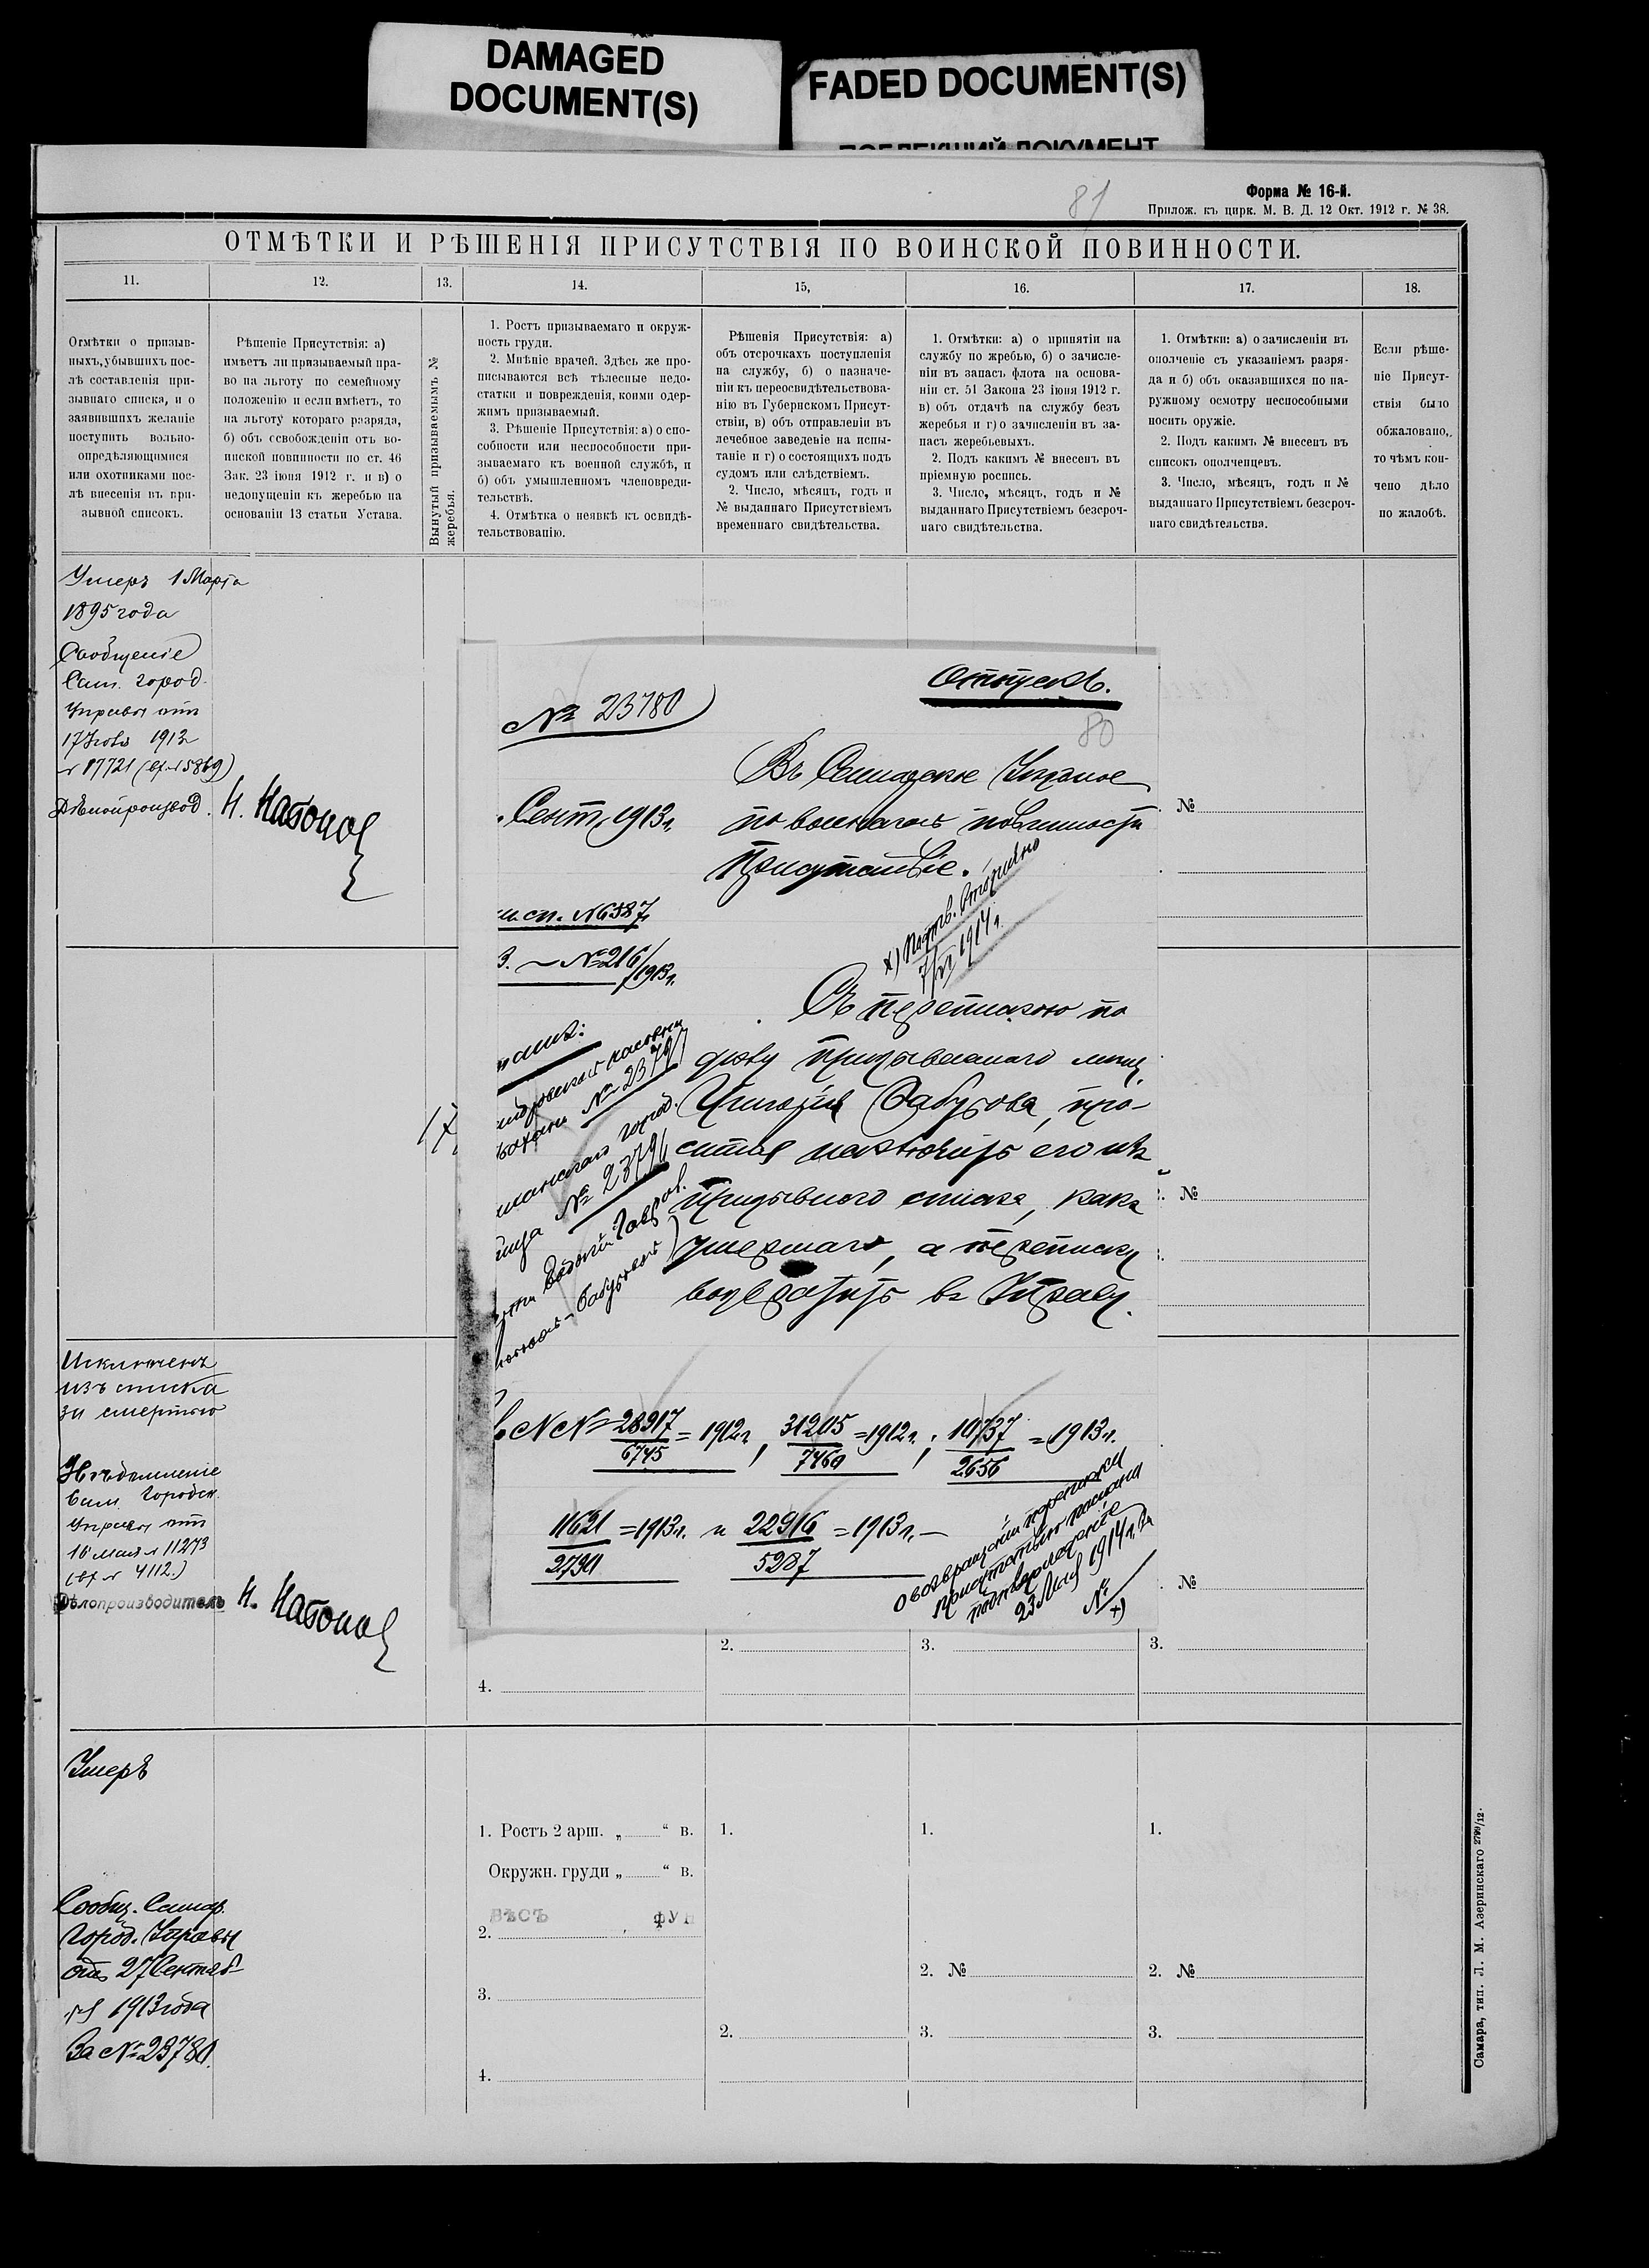 DAMAGED
DOCUMENT(S)
FADED DOCUMENT(S)
ПОБЛЕКШИЙ ДОКУМЕНТ
81
Форма № 16-й.
Прилож. къ цирк. М. В. Д. 12 Окт. 1912 г. № 38.
ОТМѢТКИ И РѢШЕНІЯ ПРИСУТСТВІЯ ПО ВОИНСКОЙ ПОВИННОСТИ.
11.
Отмѣтки о призыв-
ныхъ, убывшихъ пос-
лѣ составленія при-
зывнаго списка, и о
заявившихъ желаніе
поступить вольно-
опредѣляющимися
или охотниками пос-
лѣ внесенія въ при-
зывной списокъ.
12.
Рѣшеніе Присутствія: а)
имѣетъ ли призываемый пра-
во на льготу по семейному
положенію и если имѣетъ, то
на льготу котораго разряда,
б) объ освобожденіи отъ во-
инской повинности по ст. 46
Зак. 23 іюня 1912 г. и в) о
недопущеніи къ жеребью на
основаніи 13 статьи Устава.
13.
Вынутый призываемымъ №
жеребья.
14.
1. Ростъ призываемаго и окруж-
ность груди.
2. Мнѣніе врачей. Здѣсь же про-
писываются всѣ тѣлесные недо-
статки и поврежденія, коими одер-
жимъ призываемый.
3. Рѣшеніе Присутствія: а) о спо-
собности или неспособности при-
зываемаго къ военной службѣ, и
б) объ умышленномъ членовреди-
тельствѣ.
4. Отмѣтка о неявкѣ къ освидѣ-
тельствованію.
15,
Рѣшенія Присутствія: а)
объ отсрочкахъ поступленія
на службу, б) о назначе-
ніи къ переосвидѣтельствова-
нію въ Губернскомъ Присут-
ствіи, в) объ отправленіи въ
лечебное заведеніе на испы-
таніе и г) о состоящихъ подъ
судомъ или слѣдствіемъ.
2. Число, мѣсяцъ, годъ и
№ выданнаго Присутствіемъ
временнаго свидѣтельства.
16.
1. Отмѣтки: а) о принятіи на
службу по жребью, б) о зачисле-
ніи въ запасъ флота на основа-
ніи ст. 51 Закона 23 іюня 1912 г.
в) объ отдачѣ на службу безъ
жеребья и г) о зачисленіи въ за-
пасъ жеребьевыхъ.
2. Подъ какимъ № внесенъ въ
пріемную роспись.
3. Число, мѣсяцъ, годъ и №
выданнаго Присутствіемъ безсроч-
наго свидѣтельства.
17.
1. Отмѣтки: а) о зачисленіи въ
ополченіе съ указаніемъ разря-
да и б) объ оказавшихся по на-
ружному осмотру неспособными
носить оружіе.
2. Подъ какимъ № внесенъ въ
списокъ ополченцевъ.
3. Число, мѣсяцъ, годъ и №
выданнаго Присутствіемъ безсроч-
наго свидѣтельства.
18.
Если рѣше-
ніе Присут-
ствія было
обжаловано,
то чѣмъ кон-
чено дѣло
по жалобѣ.
Умеръ 1 Марта
1895 года
Сообщеніе
Сам. город.
Управы отъ
1913
№ 17721 (вх. № 5869)
Дѣлопроизвод.
Отпускъ.
№ 23780
80
Въ Самарское Уѣздное
Сент. 1913 г.
по воинской повинности
Присутствіе.
сп. № 6387
З. — № 216/1913 г.
х) Подтв. вторично
7/VI 1914 г.
Съ перепискою по
дѣлу призываемаго мѣщ.
Григорія Бабурова, про-
ситъ исключить его изъ
призывного списка, какъ
умершаго, а переписку
возвратить въ Управу.
№ 23797
№ 23796
№№ 28917/6745 = 1912 г., 31205/7460 = 1912 г.; 10737/2656 = 1913 г.
11621/2790 = 1913 г. и 22916/5287 = 1913 г. —
О возвращеніи переписки
присутствію послано
подтвержденіе
23 Мая 1914 г. за
№
х)
№
№
№
Исключенъ
изъ списка
за смертью
Увѣдомленіе
Сам. Городск.
Управы отъ
16 мая № 11273
(вх. № 4112.)
Дѣлопроизводитель
2.
3.
3.
4.
Умеръ
Сообщ. Самар.
Город. Управы
отъ 27 Сентяб-
ря 1913 года
За № 23780.
1. Ростъ 2 арш. „ “ в.
Окружн. груди „ “ в.
ВѢСЪ ФУН
2.
3.
4.
1.
2.
1.
2. №
3.
1.
2. №
3.
Самара, тип. Л. М. Азеринскаго 2799/12.